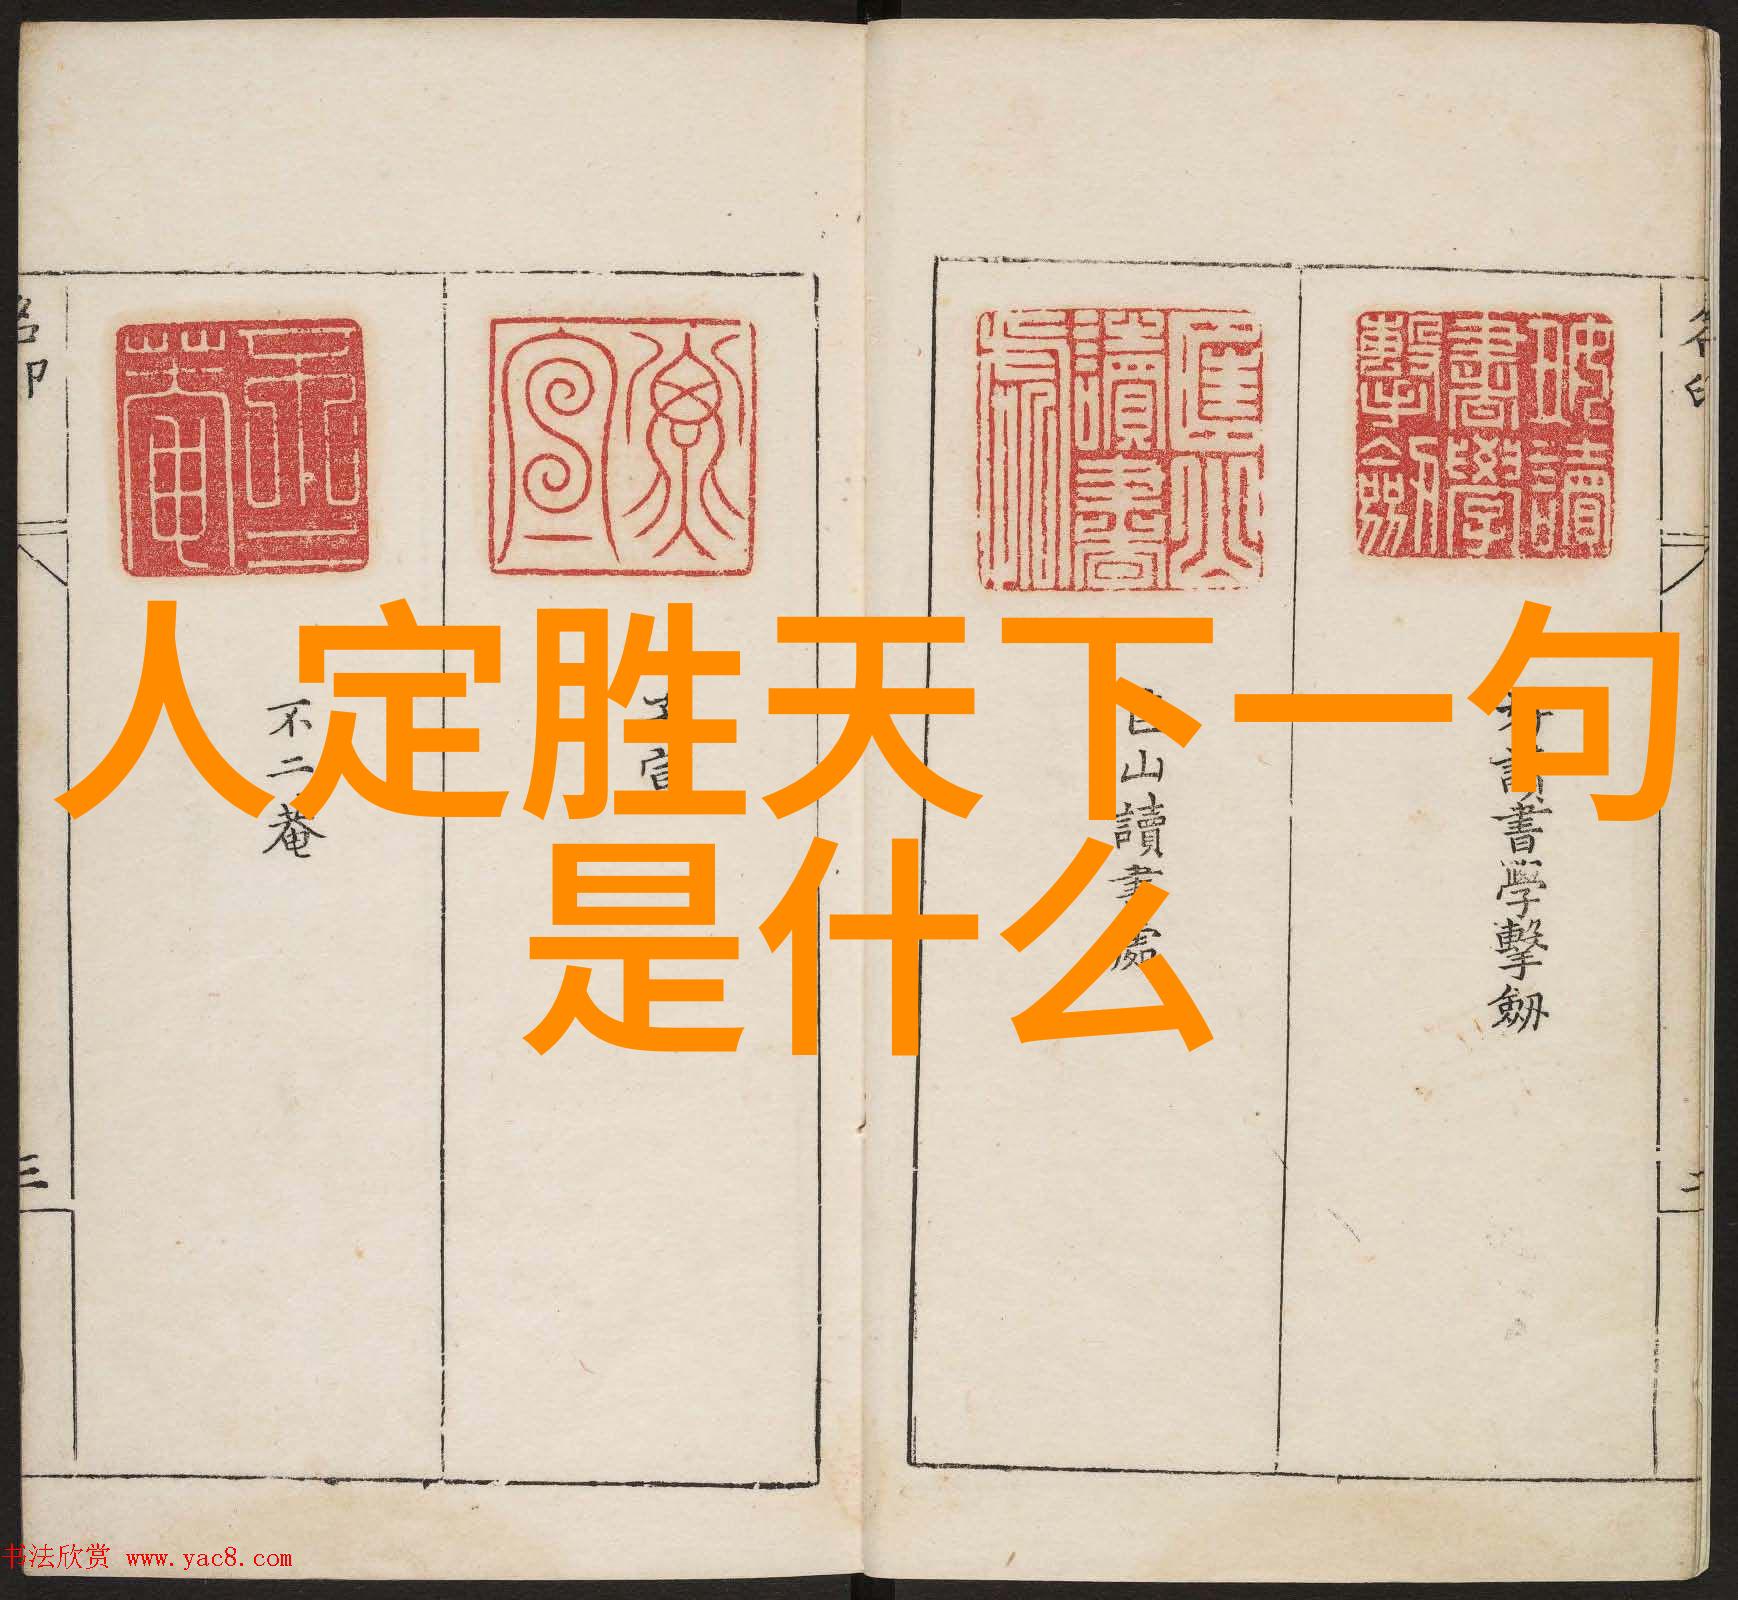 人定胜天下一句
是什么
好讀書學擊劒
匡山讀書處
不二菴
三
书法欣赏 www.yac8.com